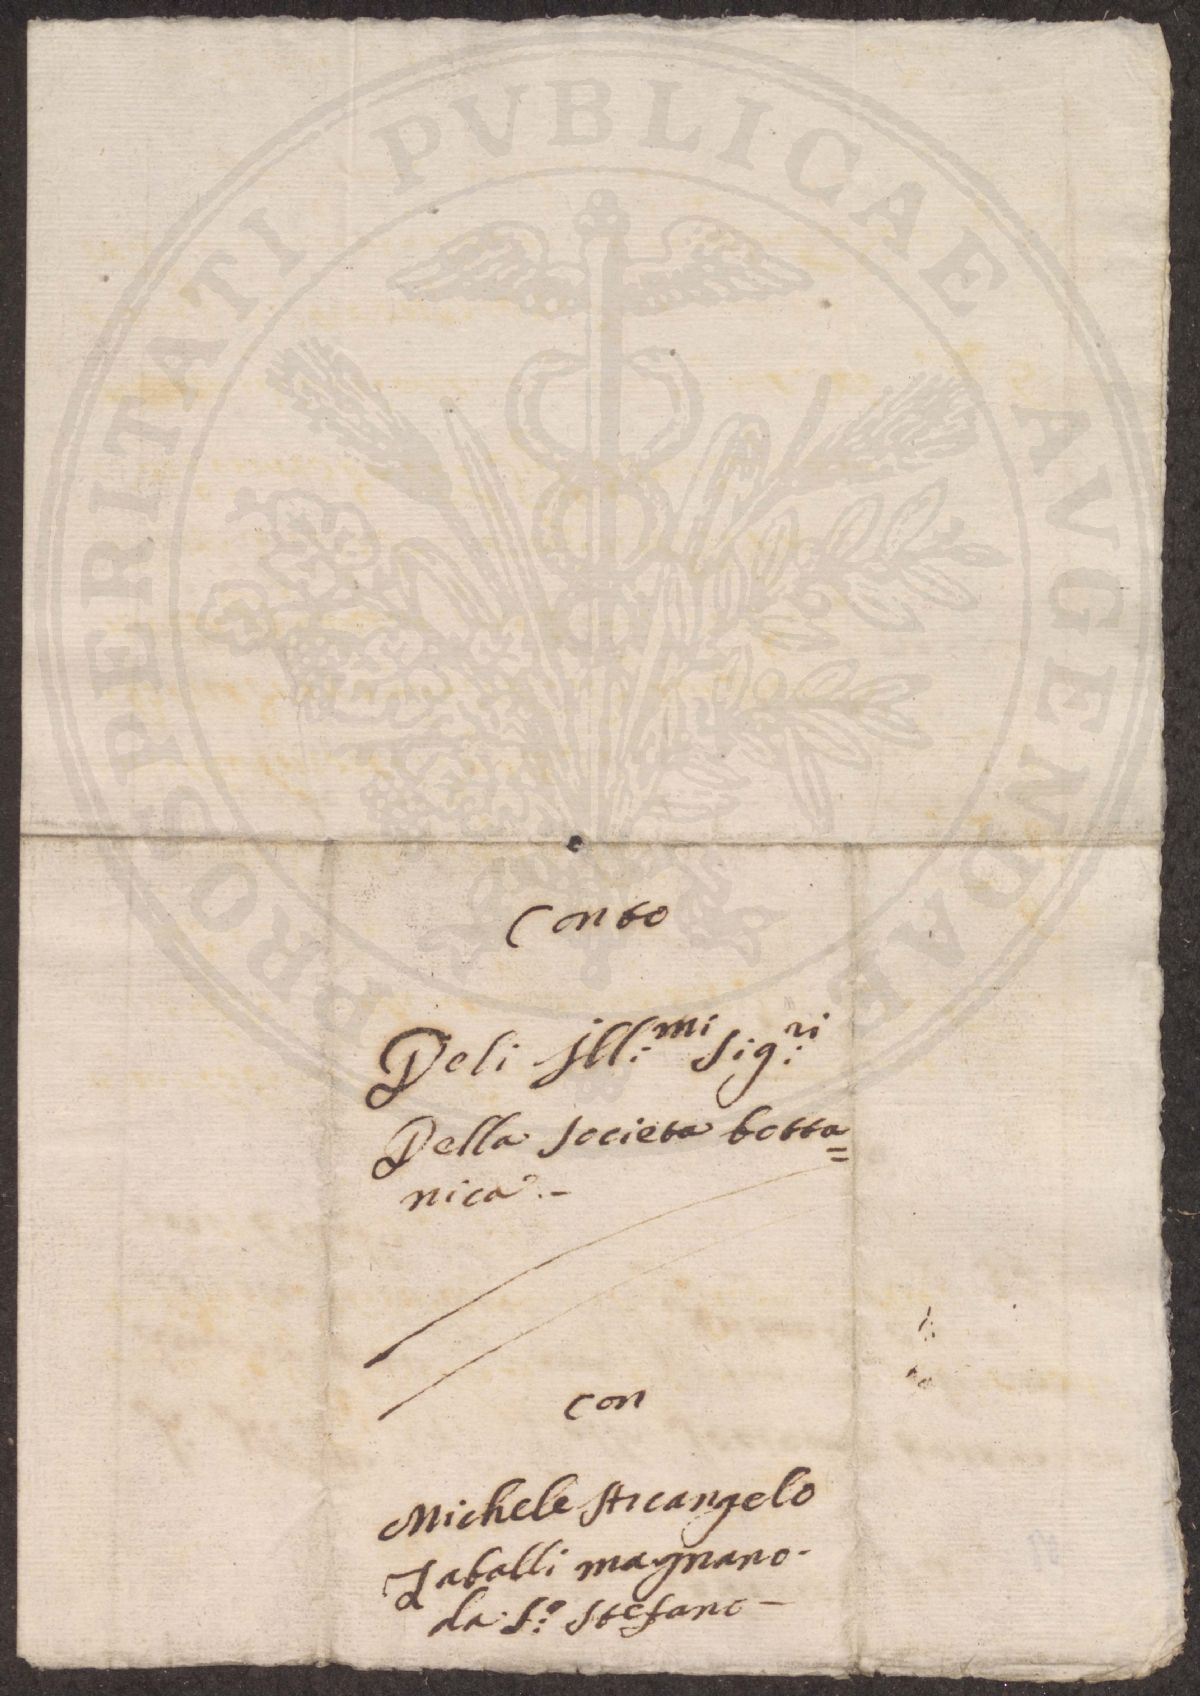 PROSPERITATI PVBLICAE AVGENDAE
Conto
Deli Ill:mi Sig:ri
Della Societa botta=
nica.-
con
Michele Arcangelo
magnano.
da S:o Stefano-